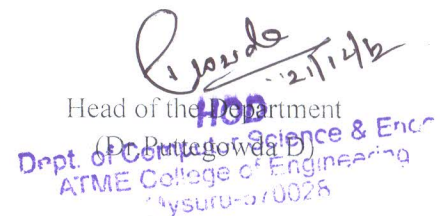 21/12/12
Head of the Department
HOD
(Dr. Puttegowda D)
Dept. of Computer Science & Engg
ATME College of Engineering
Mysuru-570028